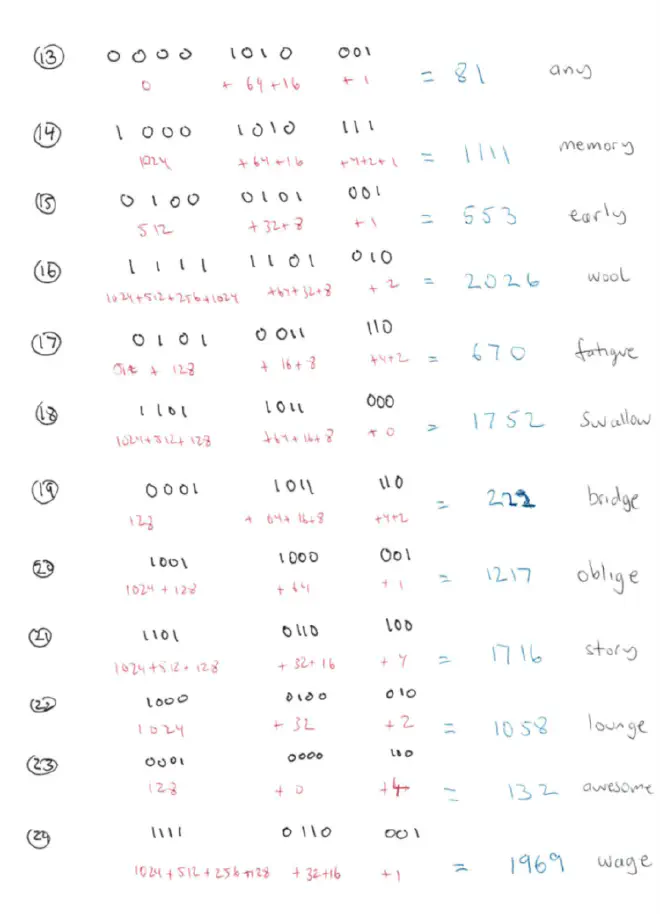 (13) 0000 1010 001
0 + 64+16 + 1 = 81 any
(14) 1000 1010 111
1024 +64+16 +4+2+1 = 1111 memory
(15) 0100 0101 001
512 +32+8 +1 = 553 early
(16) 1111 1101 010
1024+512+256+1024 +64+32+8 + 2 = 2026 wool
(17) 0101 0011 110
+ 128 + 16+8 +4+2 = 670 fatigue
(18) 1101 1011 000
1024+512+128 +64+16+8 + 0 = 1752 swallow
(19) 0001 1011 110
128 + 64+16+8 +4+2 = 222 bridge
(20) 1001 1000 001
1024 + 128 + 64 + 1 = 1217 oblige
(21) 1101 0110 100
1024+512+128 + 32+16 + 4 = 1716 story
(22) 1000 0100 010
1024 + 32 + 2 = 1058 lounge
(23) 0001 0000 100
128 + 0 +4 = 132 awesome
(24) 1111 0110 001
1024+512+256+128 + 32+16 +1 = 1969 wage